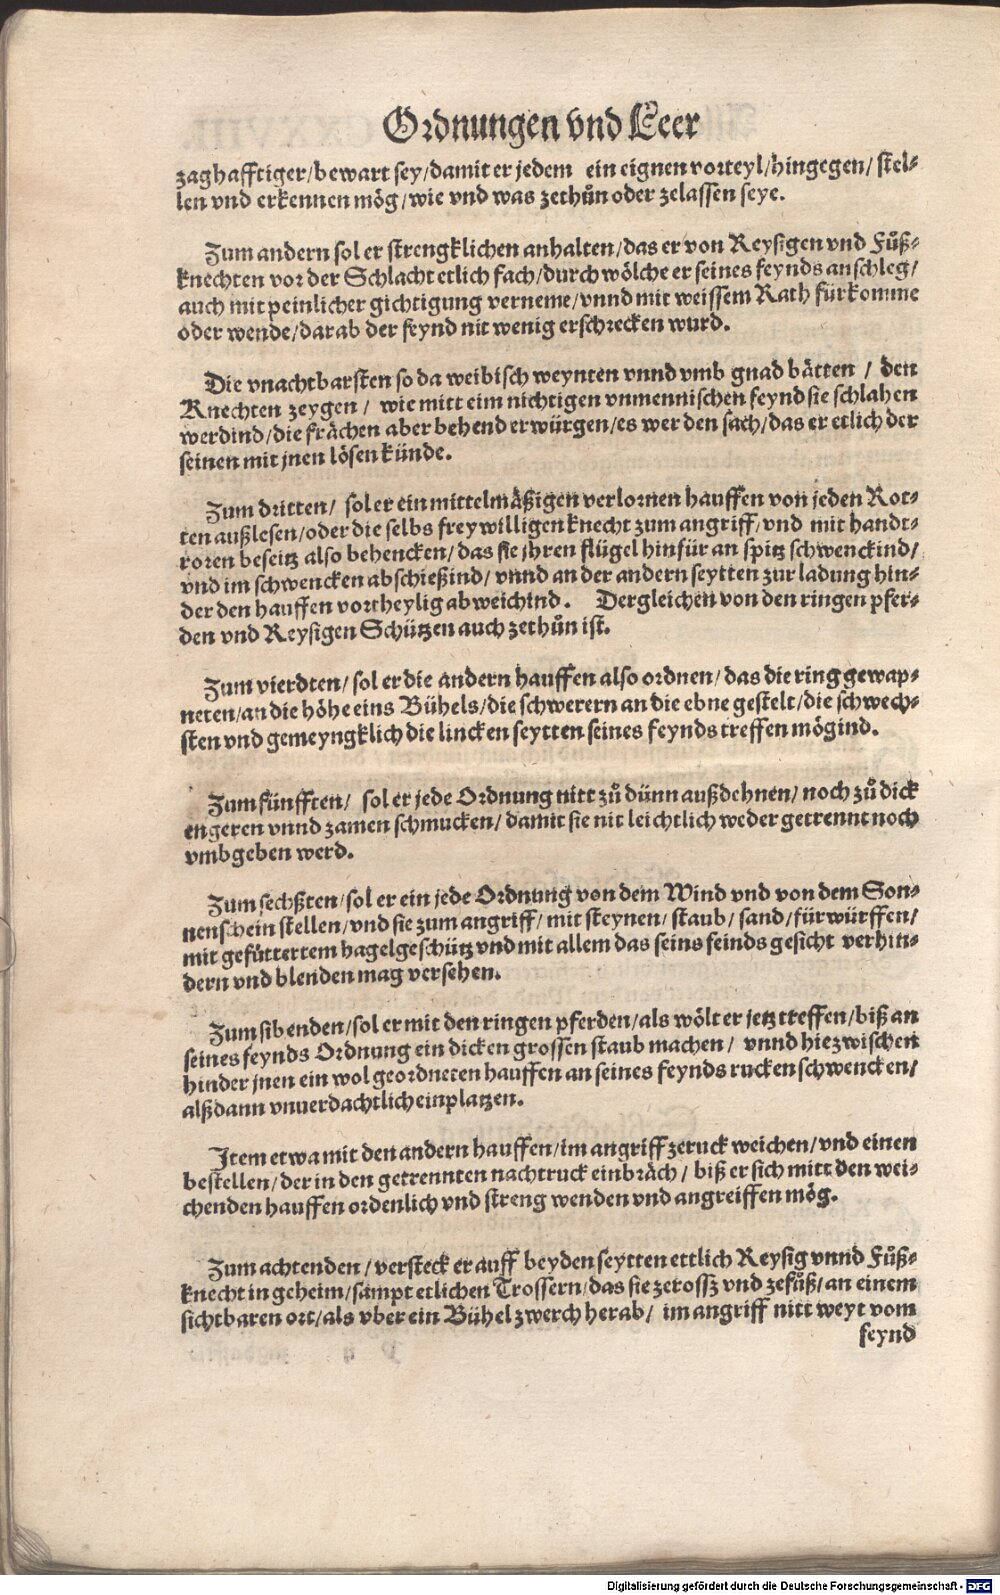 Ordnungen vnd Leer
zaghafftiger/bewart sey/damit er jedem ein eignen vorteyl/hingegen/stel⸗
len vnd erkennen mög/wie vnd was zethůn oder zelassen seye.
Zum andern sol er strengklichen anhalten/das er von Reysigen vnd Fůß⸗
knechten vor der Schlacht etlich fach/durch wölche er seines feynds anschleg/
auch mit peinlicher gichtigung verneme/vnnd mit weissem Rath fürkomme
oder wende/darab der feynd nit wenig erschrecken wurd.
Die vnachtbarsten so da weibisch weynten vnnd vmb gnad bätten / den
Knechten zeygen / wie mitt eim nichtigen vnmennischen feynd sie schlahen
werdind/die frächen aber behend erwürgen/es wer den sach/das er etlich der
seinen mit jnen lösen künde.
Zum dritten/ sol er ein mittelmäßigen verlornen hauffen von jeden Rot⸗
ten außlesen/oder die selbs freywilligen knecht zum angriff/vnd mit handt⸗
roren beseitz also behencken/das sie jhren flügel hinfür an spitz schwenckind/
vnd im schwencken abschießind/ vnnd an der andern seytten zur ladung hin⸗
der den hauffen vortheylig abweichind. Dergleichen von den ringen pfer⸗
den vnd Reysigen Schützen auch zethůn ist.
Zum vierdten/ sol er die andern hauffen also ordnen/das die ring gewap⸗
neten/an die höhe eins Bühels/die schwerern an die ebne gestelt/die schwech⸗
sten vnd gemeyngklich die lincken seytten seines feynds treffen mögind.
Zum fünfften/ sol er jede Ordnung nitt zů dünn außdehnen/noch zů dick
engeren vnnd zamen schmucken/damit sie nit leichtlich weder getrennt noch
vmbgeben werd.
Zum sechßten/sol er ein jede Ordnung von dem Wind vnd von dem Son⸗
nenschein stellen/vnd sie zum angriff/ mit steynen/ staub/ sand/fürwürffen/
mit gefüttertem hagelgeschütz vnd mit allem das seins feinds gesicht verhin⸗
dern vnd blenden mag versehen.
Zum sibenden/sol er mit den ringen pferden/als wölt er jetz treffen/biß an
seines feynds Ordnung ein dicken grossen staub machen/ vnnd hiezwischen
hinder jnen ein wol geordneten hauffen an seines feynds rucken schwencken/
alßdann vnuerdachtlich einplatzen.
Item etwa mit den andern hauffen/im angriff zeruck weichen/vnd einen
bestellen/der in den getrennten nachtruck einbräch/ biß er sich mitt den wei⸗
chenden hauffen ordenlich vnd streng wenden vnd angreiffen mög.
Zum achtenden/versteck er auff beyden seytten ettlich Reysig vnnd Fůß⸗
knecht in geheim/sampt etlichen Trossern/das sie zerossz vnd zefůß/an einem
sichtbaren ort/als vber ein Bühel zwerch herab/ im angriff nitt weyt vom
feynd
Digitalisierung gefördert durch die Deutsche Forschungsgemeinschaft - DFG